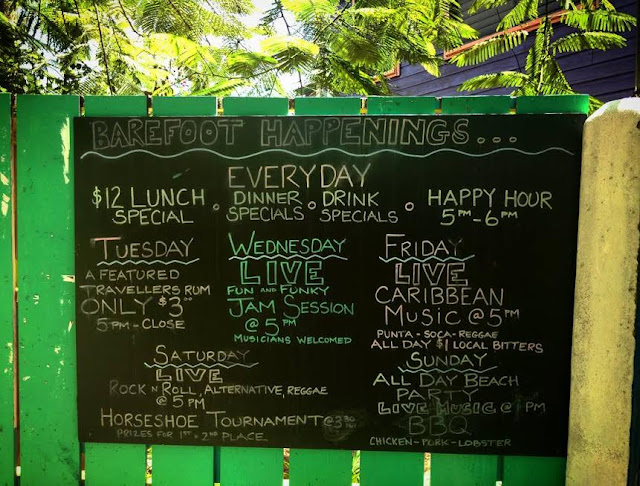 BAREFOOT HAPPENINGS...
EVERYDAY
$12 LUNCH SPECIAL • DINNER SPECIALS • DRINK SPECIALS • HAPPY HOUR 5PM-6PM
TUESDAY
A FEATURED
TRAVELLERS RUM
ONLY $3.00
5PM-CLOSE
WEDNESDAY
LIVE
FUN AND FUNKY
JAM SESSION
@ 5PM
MUSICIANS WELCOMED
FRIDAY
LIVE
CARIBBEAN
MUSIC @ 5PM
PUNTA - SOCA - REGGAE
ALL DAY $1 LOCAL BITTERS
SATURDAY
LIVE
ROCK N ROLL, ALTERNATIVE, REGGAE
@ 5PM
HORSESHOE TOURNAMENT @ 3:30
PRIZES FOR 1ST + 2ND PLACE
SUNDAY
ALL DAY BEACH
PARTY
LIVE MUSIC @ 1PM
BBQ
CHICKEN - PORK - LOBSTER